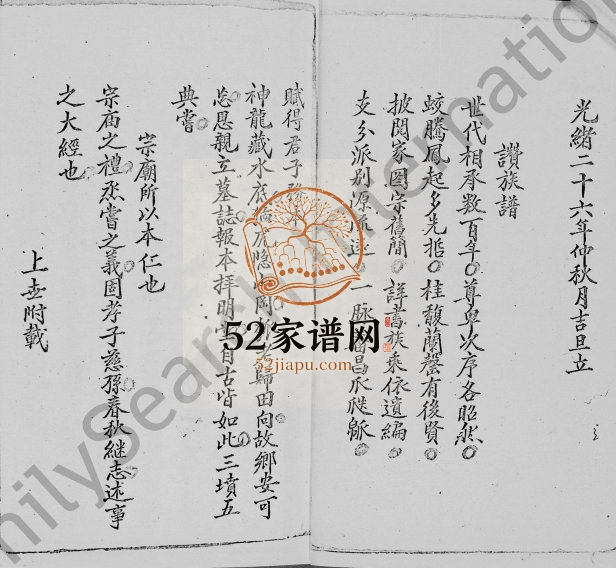 光緒二十六年仲秋月吉旦立
讚族譜
世代相承数百年尊卑次序各昭然
蛟騰鳳起多先哲桂馥蘭馨有後賢
披閱家圖宗舊簡詳書族乘依遺編
支分派別源流遠一脉
賦得君子
神龍藏水底 隐 歸田向故鄉安可
忘恩親立墓誌報本拜明堂自古皆如此三墳五
典嘗
宗廟所以本仁也
宗庙之禮烝嘗之義固孝子慈孫春秋継志述事
之大經也
上世附載
52家谱网
52jiapu.com